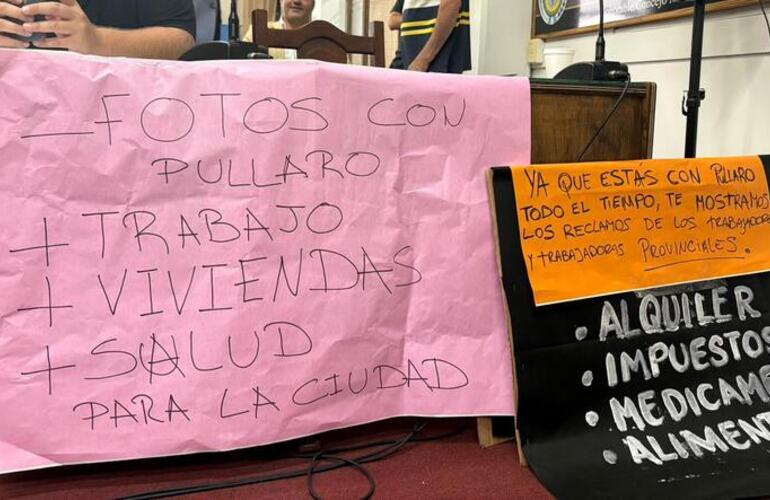 — FOTOS CON
PULLARO
+ TRABAJO
+ VIVIENDAS
+ SALUD
PARA LA CIUDAD
YA QUE ESTÁS CON PULLARO
TODO EL TIEMPO, TE MOSTRAMOS
LOS RECLAMOS DE LOS TRABAJADORE
Y TRABAJADORAS PROVINCIALES.
• ALQUILER
• IMPUESTOS
• MEDICAME
• ALIMENT